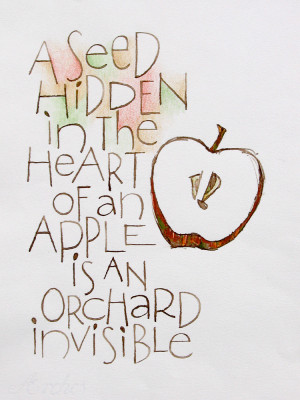 A SEED
HIDDEN
in the
HEART
of an
APPLE
is AN
ORCHARD
invisible